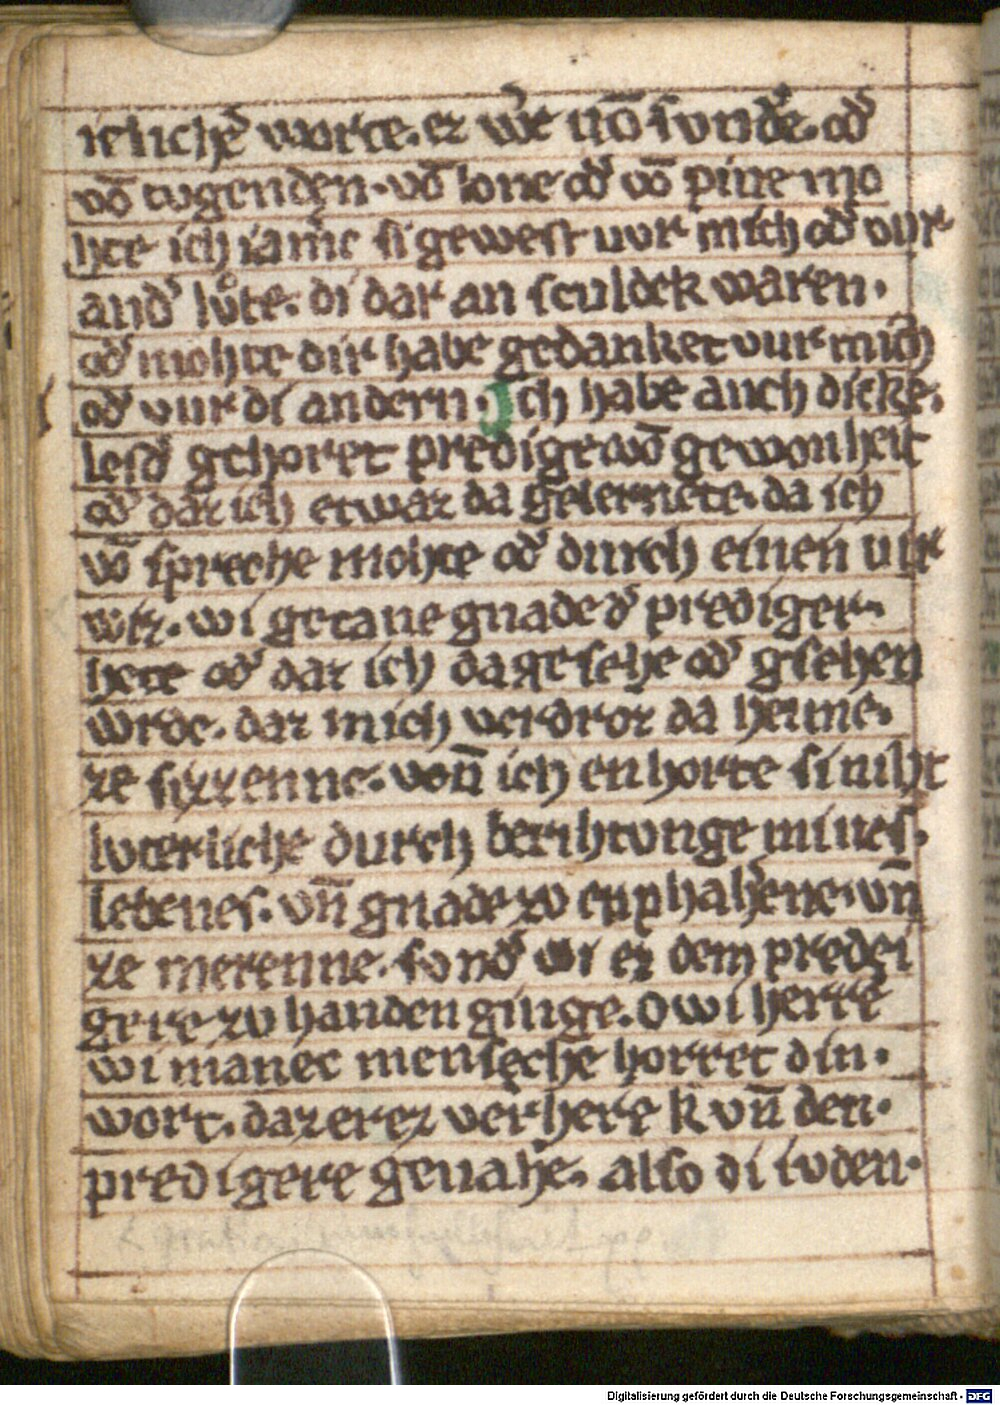 ielichē worte. ez wͤr uō sunde. od̕
vō tvgenden. vō lone od̕ vō pine mo
hte ich iam̄c si gewest uvr mich od̕ uvr
and̕ lv̊te. di dar an sculdek waren.
od̕ mohte dir habe gedanket vur mich
od̕ vur di andern. Ich habe auch dicke.
lesd̕ gehoret predige vō gewonheit
od̕ daz ich etwaz da gelernete. da ich
vō spreche mohte od̕ durch einen uir
wiz. wi getane gnade d̕ prediger.
hete od̕ daz ich da gesehe od̕ gsehen
wrde. daz mich verdroz da heime.
ze sizzenne. voñ ich enhorte si niht
lvterliche durch berihtvnge mines.
lebenes. vñ gnade zv enphahene. vñ
ze merenne. sond̕ wi ez dem predei
gere zv handen ginge. Owi herre
wi manec mensche horret din.
wort. daz erez verhere k vñ den.
predigere genahe. also di ivden.
Digitalisierung gefördert durch die Deutsche Forschungsgemeinschaft - DFG